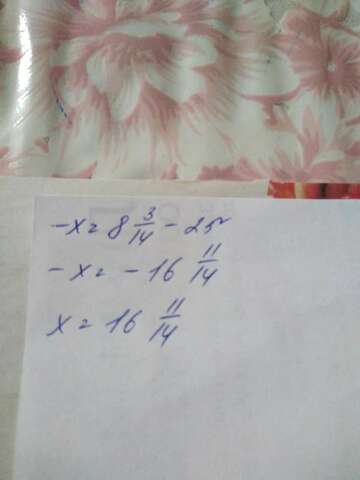 -x = 8 3/14 - 25
-x = -16 11/14
x = 16 11/14